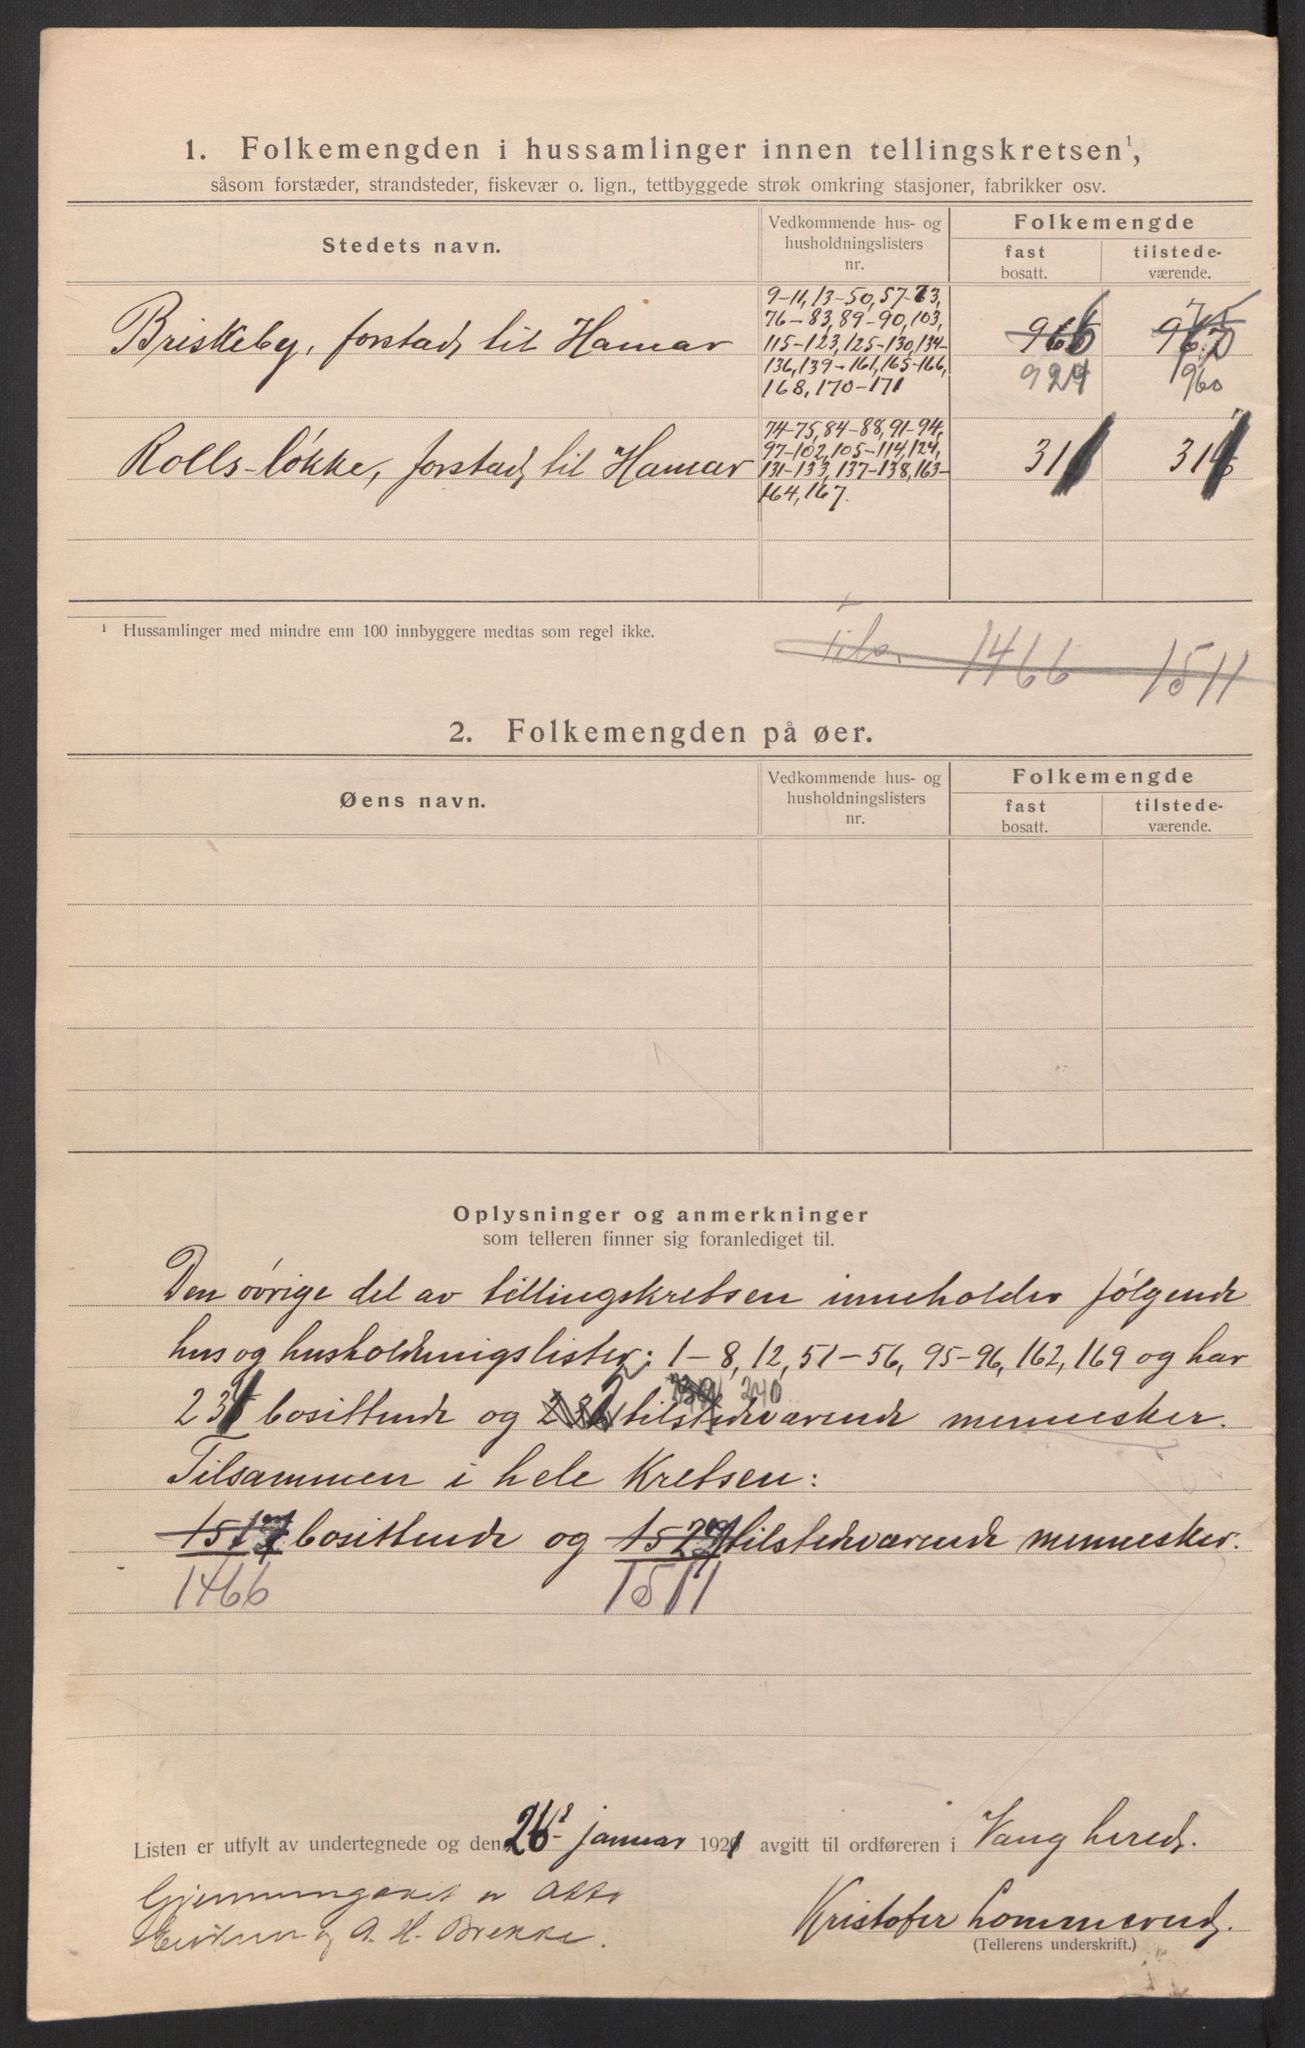 1. Folkemengden i hussamlinger innen tellingskretsen¹,
såsom forstæder, strandsteder, fiskevær o. lign., tettbyggede strøk omkring stasjoner, fabrikker osv.
Stedets navn.
Vedkommende hus- og
husholdningslisters
nr.
Folkemengde
fast
bosatt.
tilstede-
værende.
Briskeby, forstad til Hamar
9-11, 13-50, 57-73,
76-83, 89-90, 103,
115-123, 125-130, 134-
136, 139-161, 165-166,
168, 170-171
966
924
960
Rolls-løkke, forstad til Hamar
74-75, 84-88, 91-94,
97-102, 105-114, 124,
131-133, 137-138, 163-
164, 167.
¹ Hussamlinger med mindre enn 100 innbyggere medtas som regel ikke.
Tils. 1466 1511
2. Folkemengden på øer.
Øens navn.
Vedkommende hus- og
husholdningslisters
nr.
Folkemengde
fast
bosatt.
tilstede-
værende.
Oplysninger og anmerkninger
som telleren finner sig foranlediget til.
Den øvrige del av tellingskretsen inneholder følgende
hus og husholdningslister: 1-8, 12, 51-56, 95-96, 162, 169 og har
240
bosittende og tilstedeværende mennesker.
Tilsammen i hele kretsen:
bosittende og tilstedeværende mennesker.
1466 1511
Listen er utfylt av undertegnede og den 26 januar 1921 avgitt til ordføreren i Vang herred.
Gjennemgaaet av
og A. H. Brekke.
Kristofer Lommerud.
(Tellerens underskrift.)